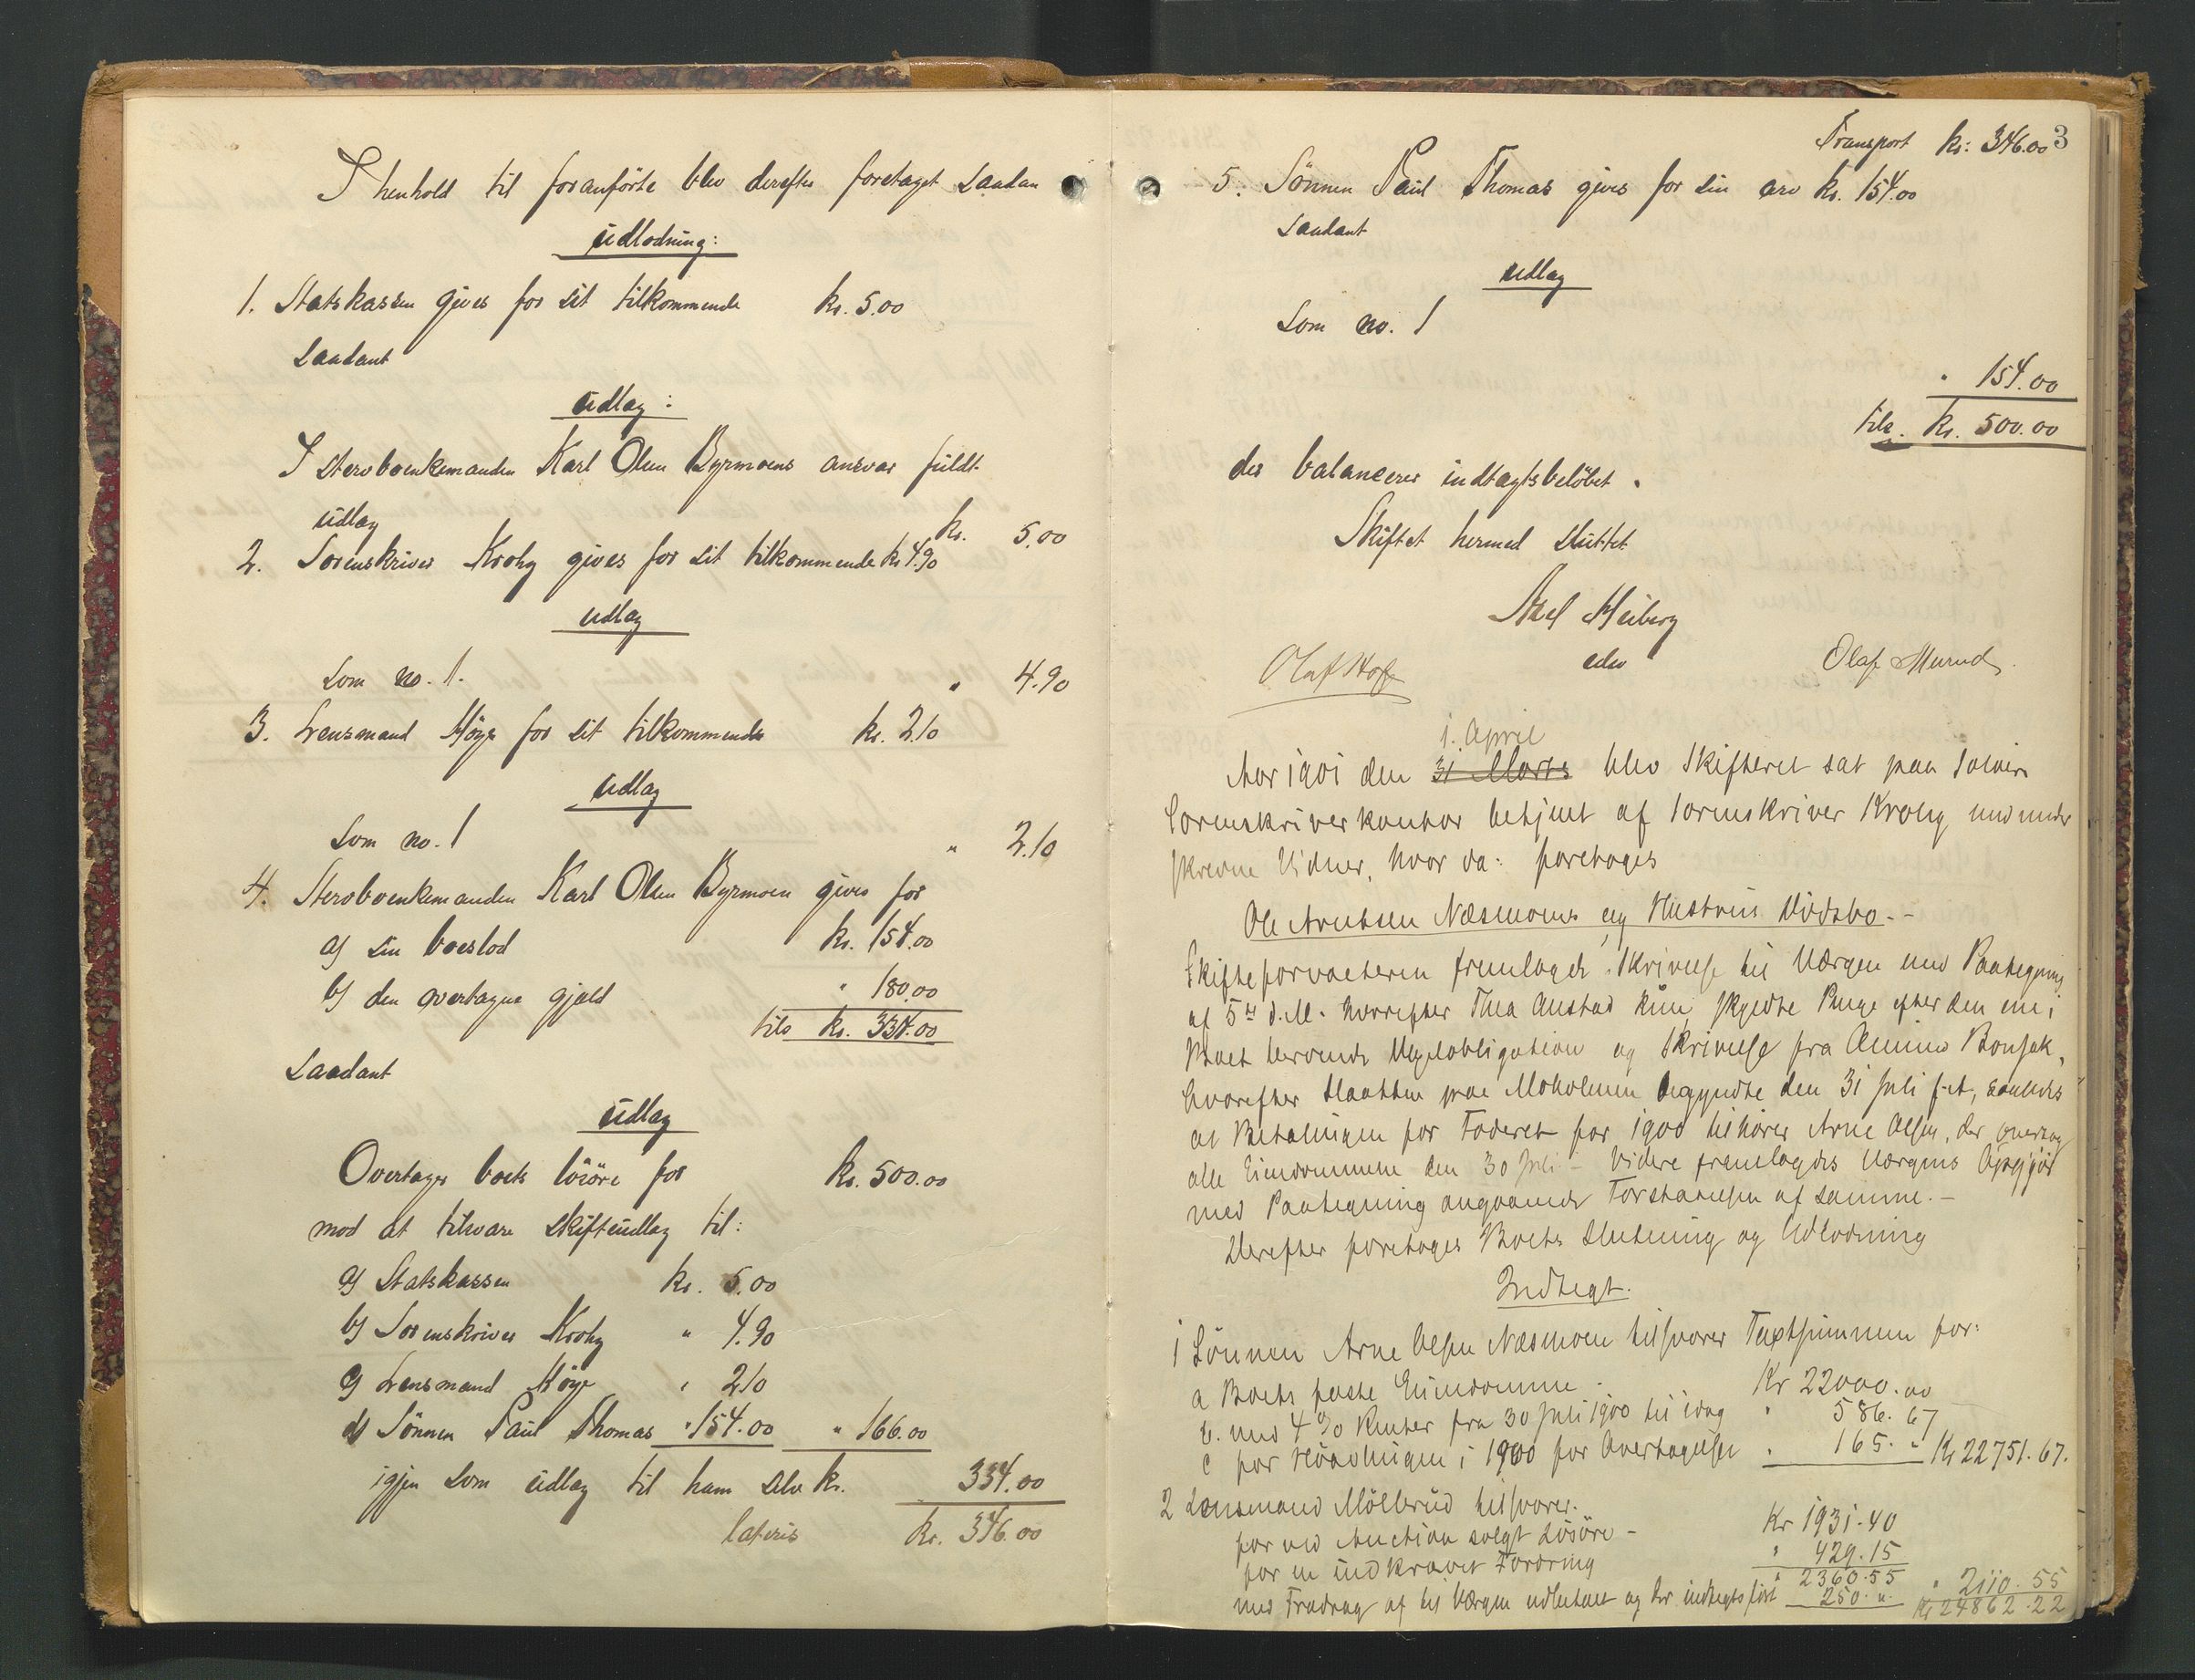 I henhold til foranførte blev derefter foretaget saadan
udlodning:
1. Statskassen gives for sit tilkommende kr. 5.00
saadant
udlag:
I stervboenkemanden Karl Olsen Byrmoens ansvar fuldt
udlag kr. 5.00
2. Sorenskriver Krohg gives for sit tilkommende kr 4.90
udlag
som no. 1. " 4.90
3. Lensmand Høye for sit tilkommende kr. 2.10
udlag
som no. 1 " 2.10
4. Stervboenkemanden Karl Olsen Byrmoen gives for
a) sin boeslod kr. 154.00
b) den overtagne gjæld " 180.00
tils kr. 334.00
saadant
udlag
Overtager boets løsøre for kr. 500.00
mod at tilsvare skifteudlag til:
a) Statskassen kr. 5.00
b) Sorenskriver Krohg " 4.90
c) Lensmand Høye " 2.10
d) Sønnen Paul Thomas " 154.00 " 166.00
igjen som udlag til ham selv kr. 334.00
lateris kr. 346.00
Transport kr: 346.00 3
5. Sønnen Paul Thomas gives for sin arv kr. 154.00
saadant
udlag
som no. 1
" 154.00
tils. kr. 500.00
der balancerer indtægtsbeløbet.
Skiftet hermed sluttet
Axel Heiberg
edsv
Olaf Hoff Olaf Murud
1. April
Aar 1901 den 31 Marts blev Skifteret sat paa Solørs
Sorenskriverkontor betjent af Sorenskriver Krohg med under
skrevne Vidner, hvor da: foretoges
Ole Arntsen Næsmoens og Hustrus Dødsbo.-
Skifteforvalteren fremlagde Skrivelse til Værgen med Paategning
af 5te d.M. hvorefter Thea Austad kun skyldte Penge efter den ene i
Boet beroende Obligation og Skrivelse fra
hvorefter Slaatten paa Moholmen begyndte den 31 Juli f.A., saaledes
at Betalingen for Foderet for 1900 tilhører Arne Olsen, der overtog
alle Eiendommene den 30 Juli - Videre fremlagdes Værgens Opgjør
med Paategning angaaende Forstaaelsen af samme.-
Derefter foretoges Boets Slutning og Udlodning
Indtægt.
1 Sønnen Arne Olsen Næsmoen tilsvarer Taxtsummen for:
a Boets faste Eiendomme - Kr 22000.00
b. med 4 % Renter fra 30 Juli 1900 til idag " 586.67
c for Høavlingen i 1900 før Overtagelsen " 165. " Kr 22751.67.
2 Lensmand Møllerud tilsvarer.
for ved Auction solgt Løsøre - Kr 1931.40
for en indkrævet Fordring " 429.15
" 2360.55
med Fradrag af til Værgen udbetalt og der indtægtsført 250. " " 2110.55
Kr 24862.22